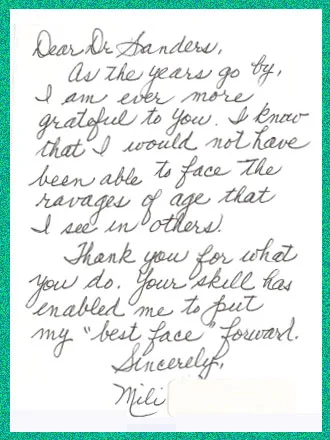 Dear Dr Sanders,
As the years go by,
I am ever more
grateful to you. I know
that I would not have
been able to face the
ravages of age that
I see in others!
Thank you for what
you do. Your skill has
enabled me to put
my "best face" forward.
Sincerely,
Mili